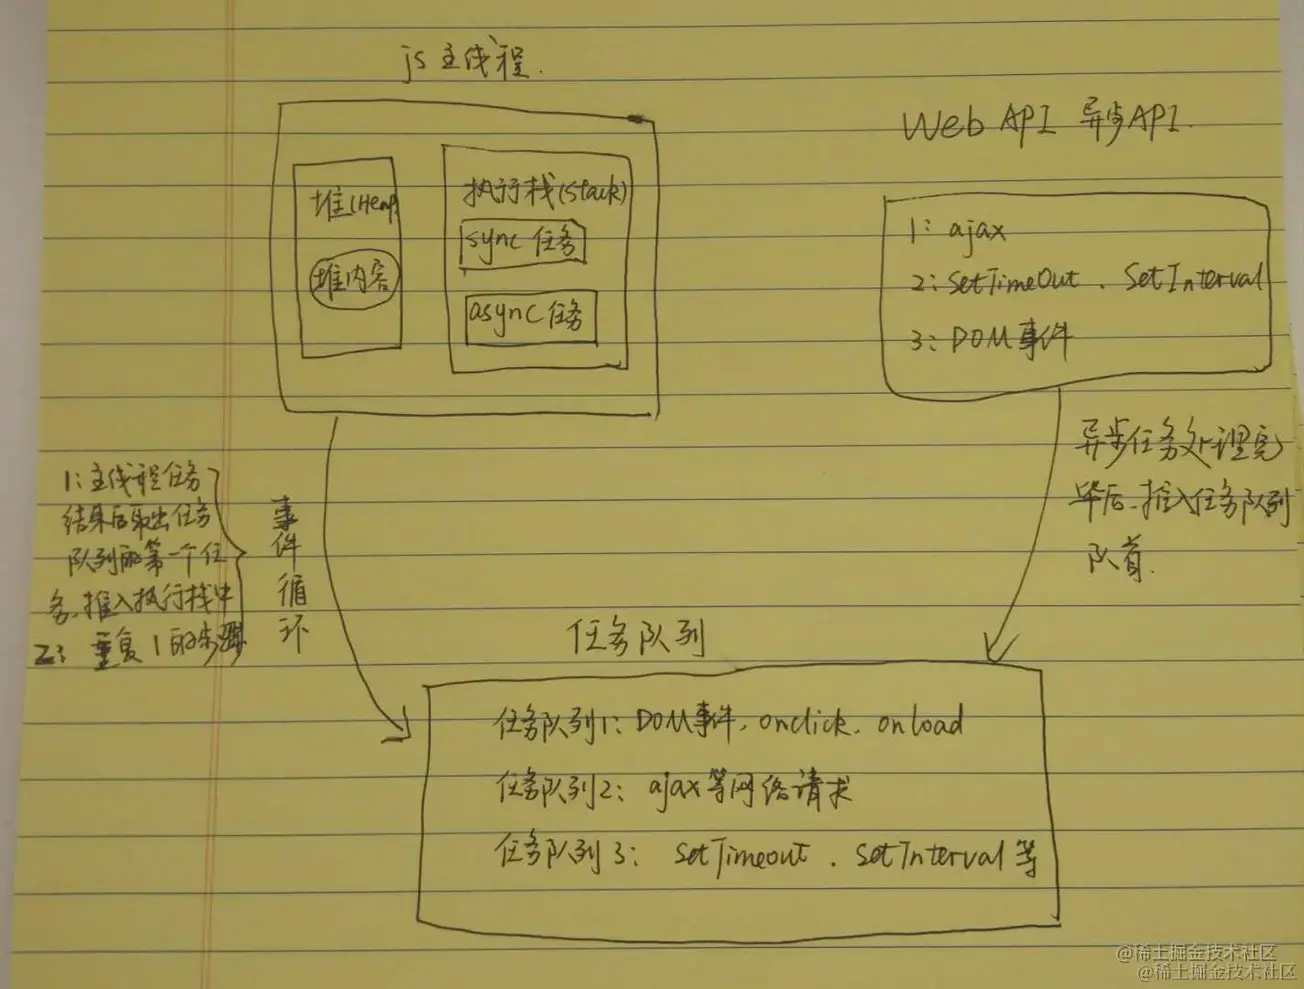 js 主线程.
堆(Heap)
堆内容
执行栈(Stack)
sync 任务
async 任务
Web API 异步API.
1: ajax
2: SetTimeOut 、SetInterval
3: DOM事件
异步任务处理完
毕后、推入任务队列
队首.
1: 主线程任务
结果后取出任务
队列的第一个任
务、推入执行栈中
2: 重复1的步骤
事件循环
任务队列
任务队列1: DOM事件、onclick、onload
任务队列2: ajax等网络请求
任务队列3: SetTimeout 、SetInterval等
@稀土掘金技术社区
@稀土掘金技术社区